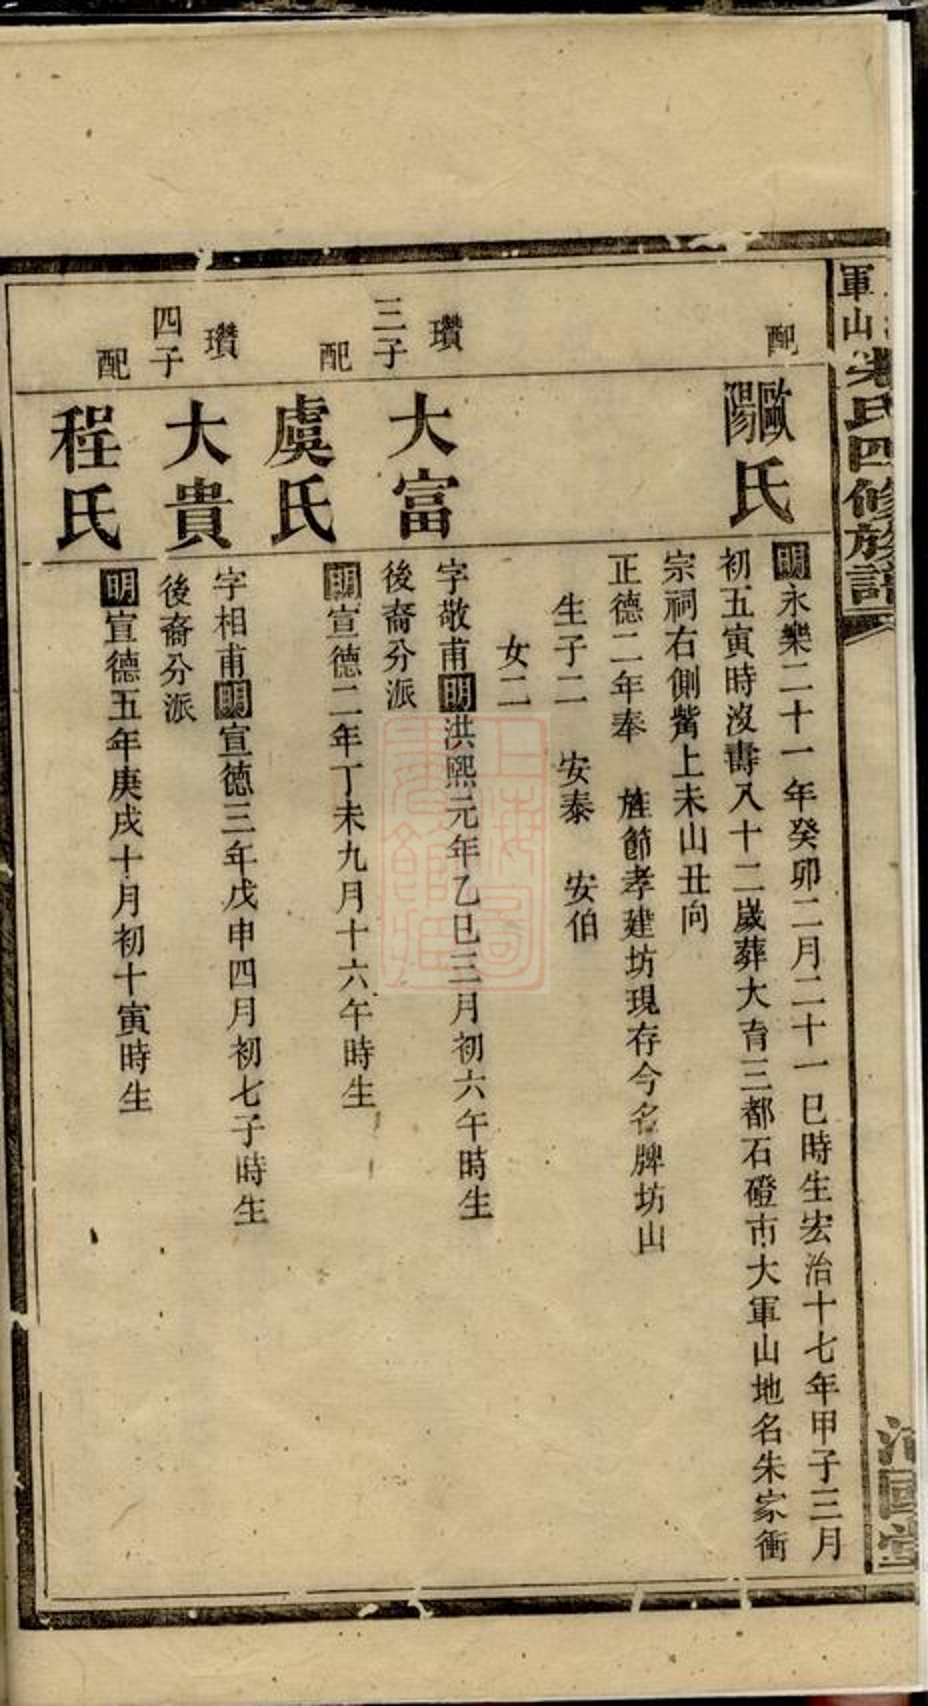 軍山朱氏四修族譜
治國堂
配
歐陽氏
明永樂二十一年癸卯二月二十一巳時生宏治十七年甲子三月
初五寅時沒壽八十二歲葬大育三都石磴市大軍山地名朱家衝
宗祠右側觜上未山丑向
正德二年奉 旌節孝建坊現存今名牌坊山
生子二 安泰 安伯
女二
瓚三子
大富
字敬甫明洪熙元年乙巳三月初六午時生
後裔分派
配
虞氏
明宣德二年丁未九月十六午時生
瓚四子
大貴
字相甫明宣德三年戊申四月初七子時生
後裔分派
配
程氏
明宣德五年庚戌十月初十寅時生
上海圖書館藏